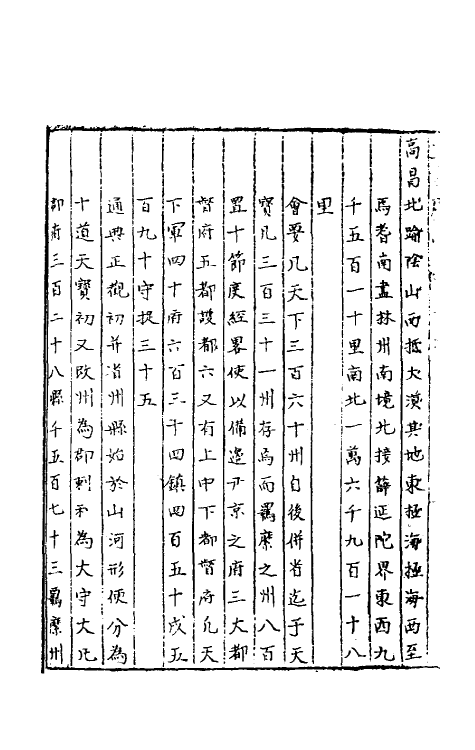 高昌北踰陰山西抵大漠其地東極海極海西至
焉耆南盡林州南境北接薛延陀界東西九
千五百一十里南北一萬六千九百一十八
里
會要凡天下三百六十州自後併省迄于天
寶凡三百三十一州存焉而羈縻之州八百
置十節度經畧使以備邊尹京之府三大都
督府五都護都六又有上中下都督府凡天
下軍四十府六百三十四鎮四百五十戍五
百九十守捉三十五
通典正觀初并省州縣始於山河形便分為
十道天寶初又改州為郡刺史為大守大凡
郡府三百二十八縣千五百七十三羈縻州